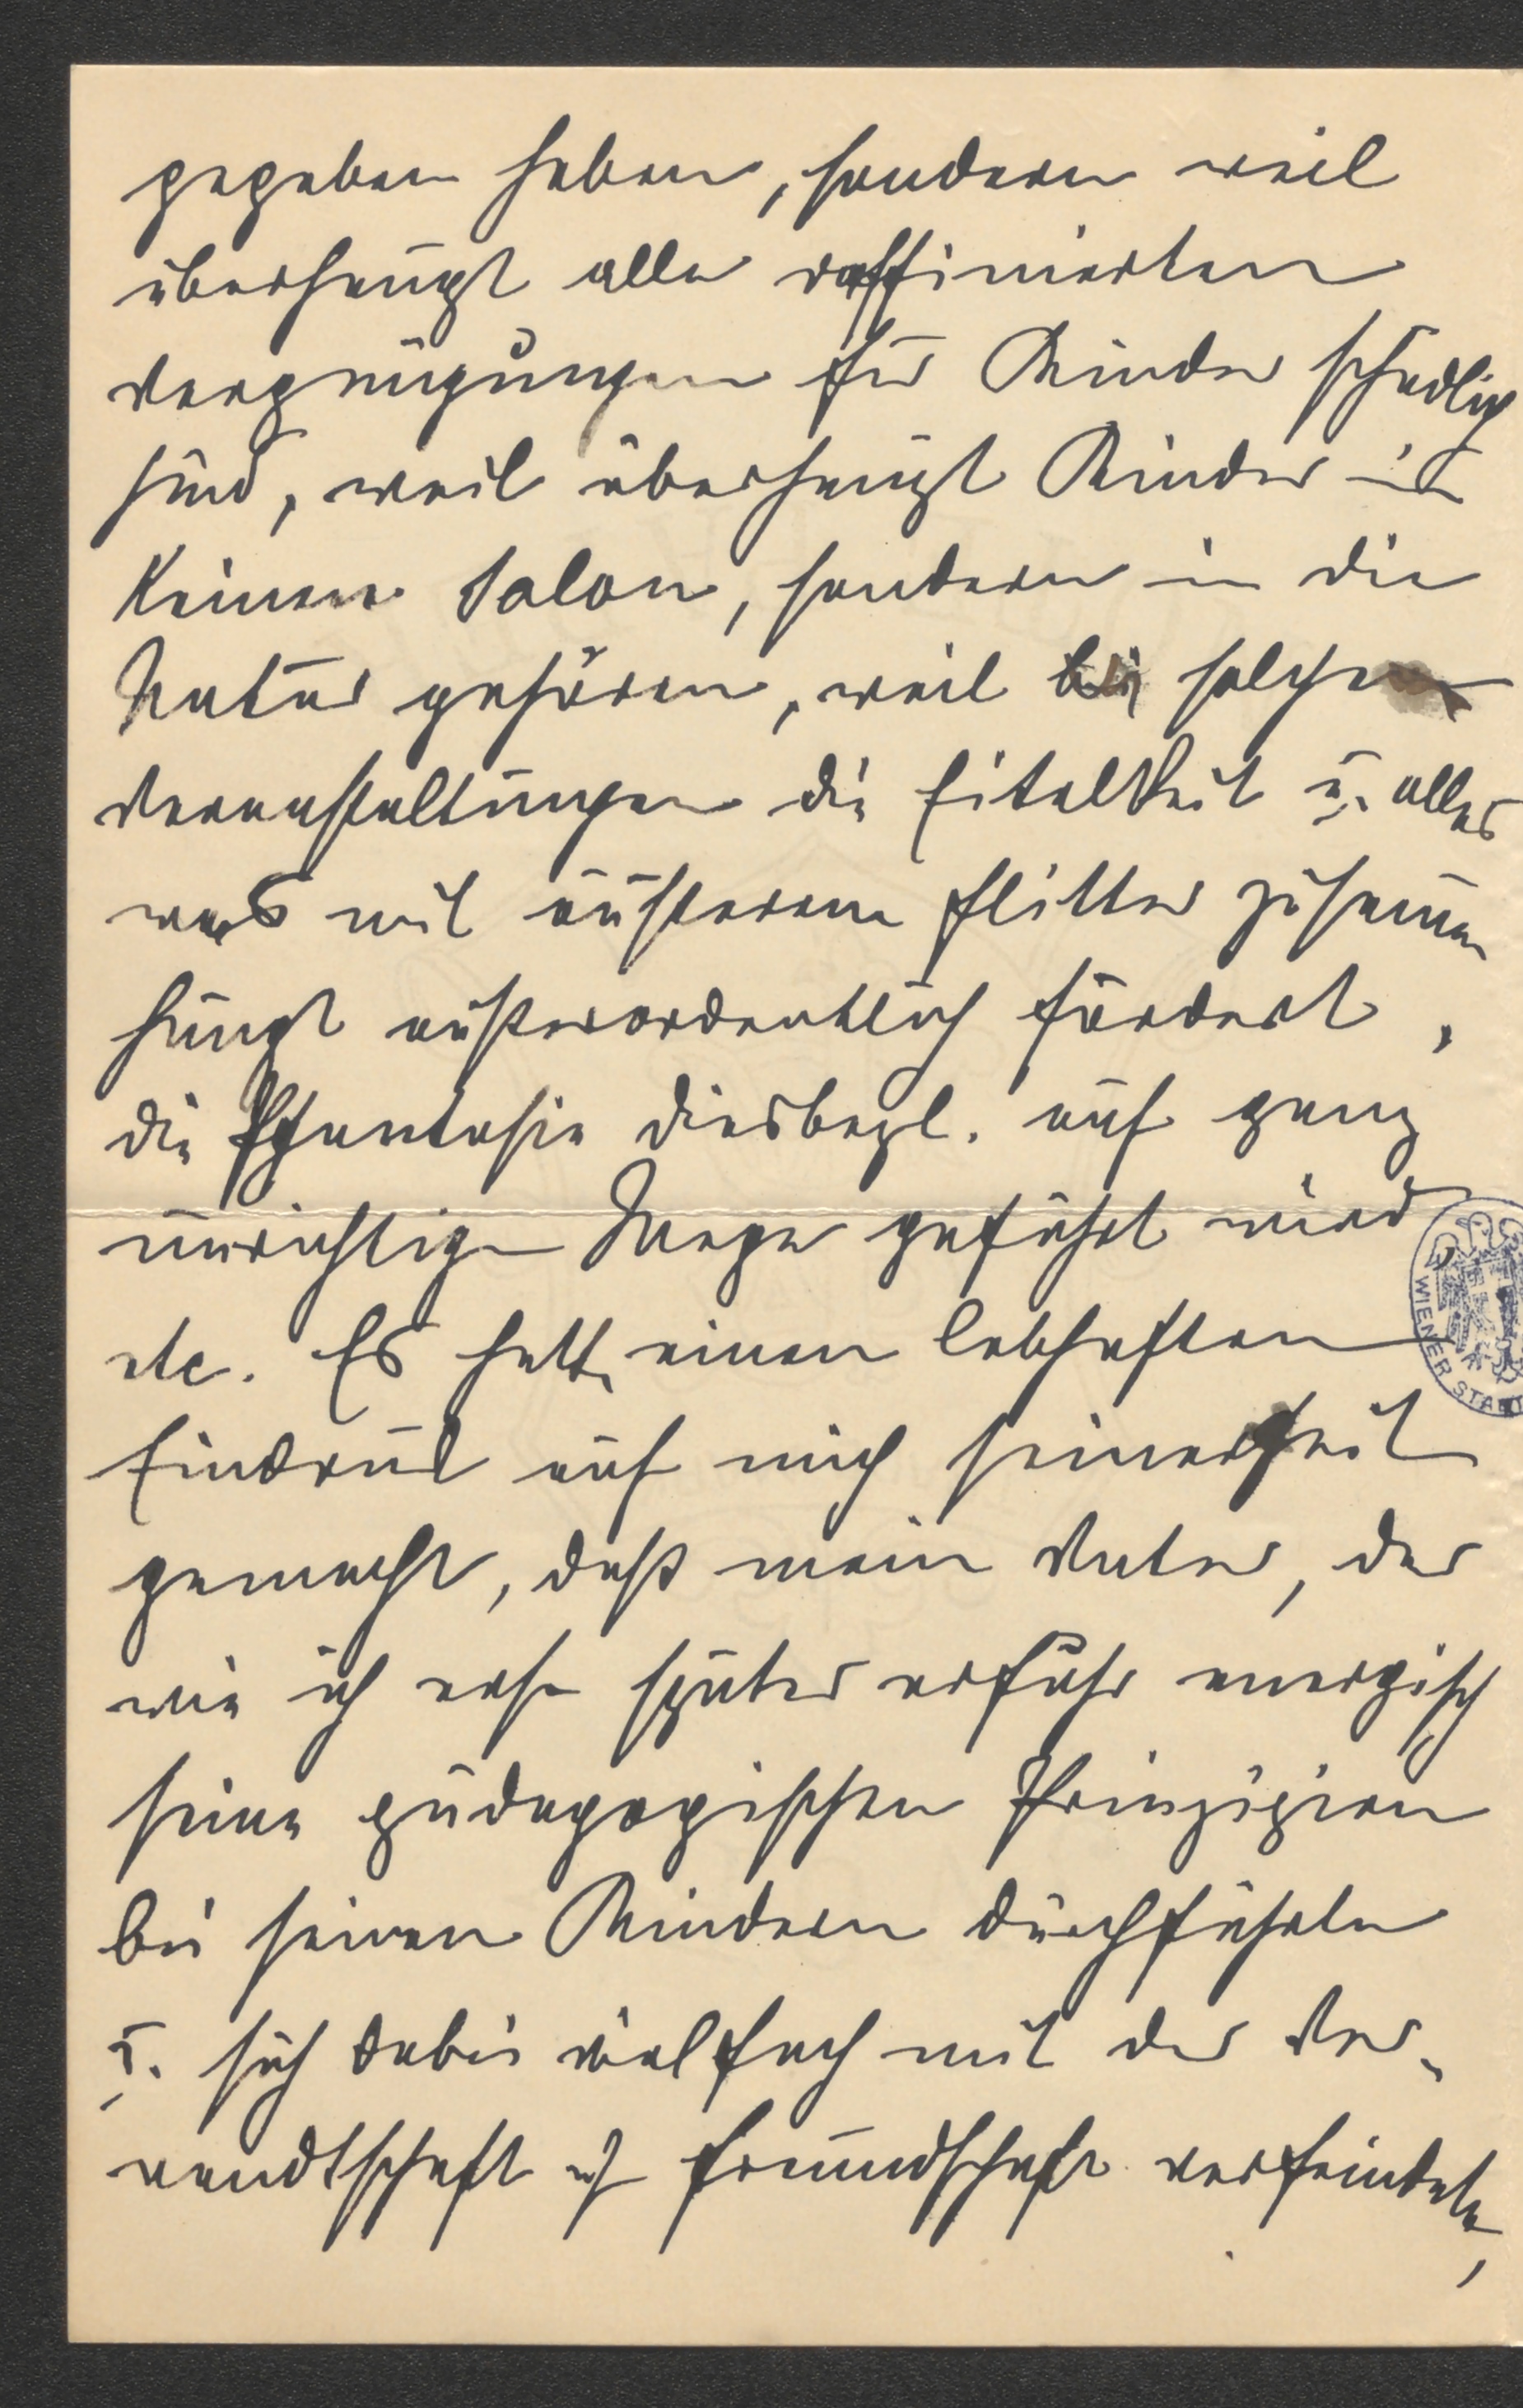 gegeben haben, sondern weil
überhaupt alle raffinierten
Vergnügungen für Kinder schädlich
sind, weil überhaupt Kinder in
keinen Salon, sondern in die
Natur gehören, weil bei solchen
Veranstaltungen die Eitelkeit u. alles
was mit äußerem Flitter zusammen
hängt außerordentlich fördert,
die Phantasie diesbezgl. auf ganz
unrichtige Wege geführt wird
etc. Es hatte einen lebhaften
Eindruck auf mich seinerzeit
gemacht, daß mein Vater, der
wie ich erst später erfuhr energisch
seine pädagogischen Prinzipien
bei seinen Kindern durchführte
u. sich dabei vielfach mit der Ver-
wandtschaft u. Freundschaft verfeindete,
WIENER STADT